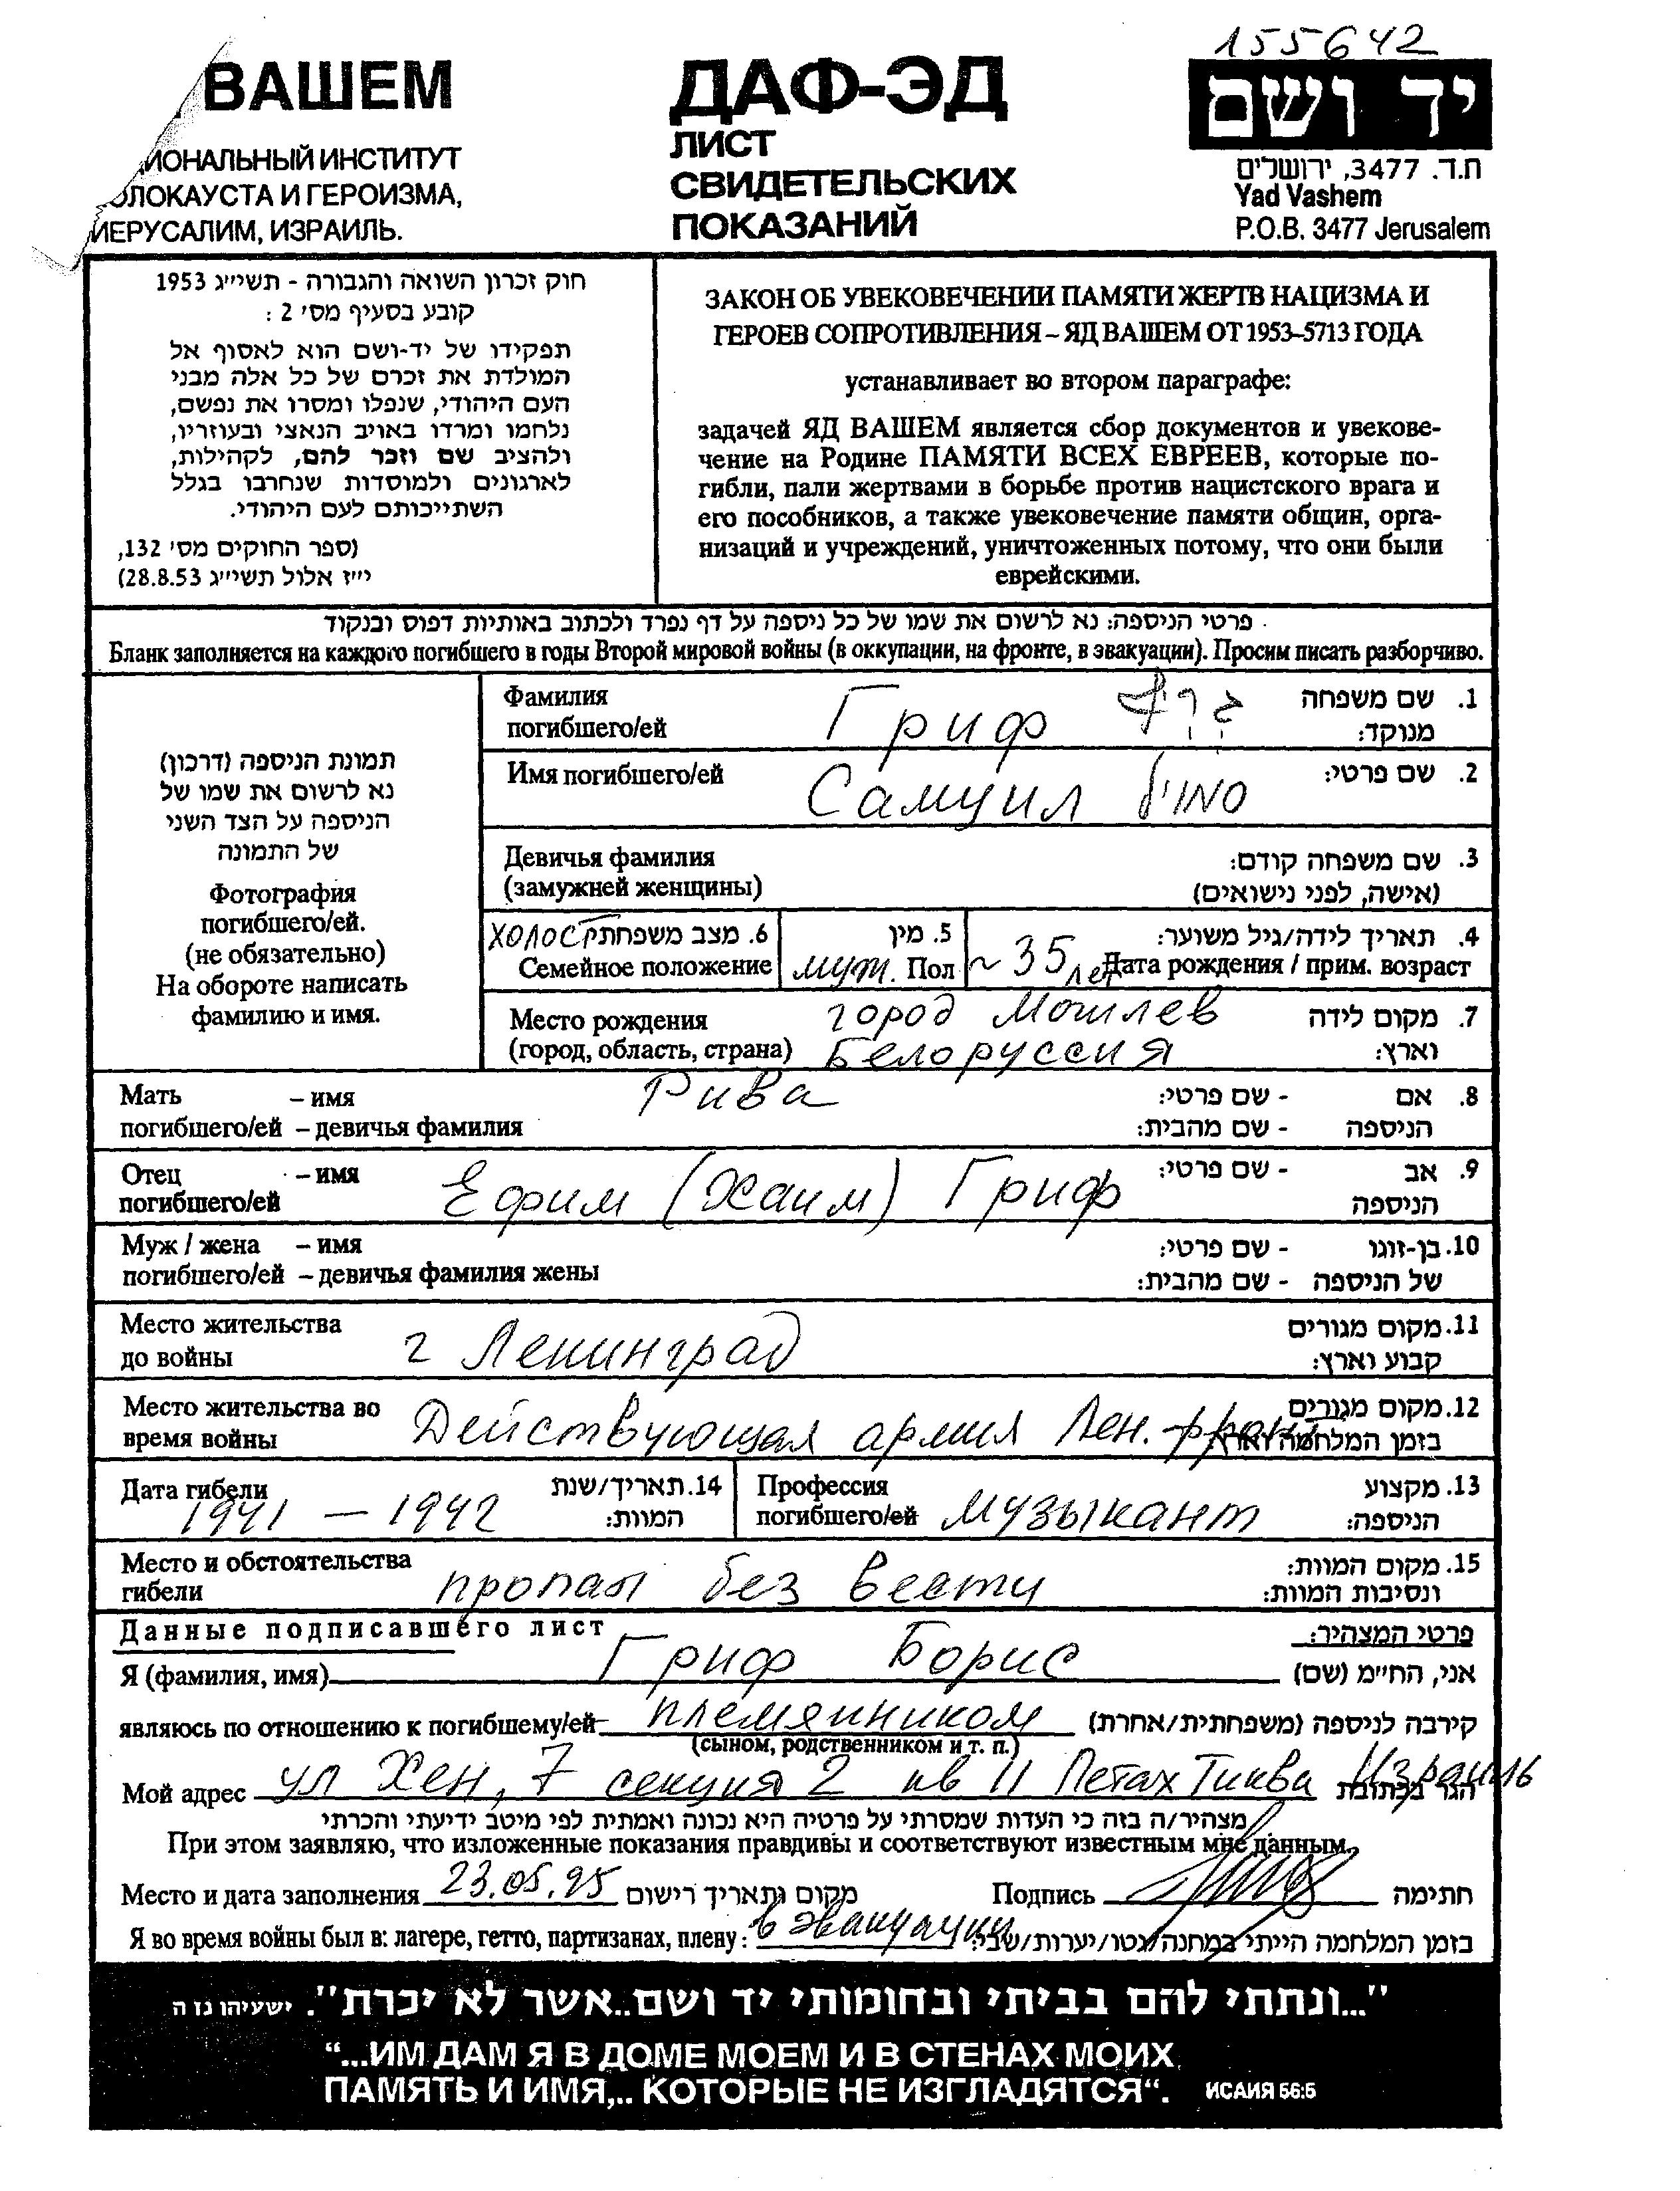 155642
ВАШЕМ
ИОНАЛЬНЫЙ ИНСТИТУТ
ОЛОКАУСТА И ГЕРОИЗМА,
ИЕРУСАЛИМ, ИЗРАИЛЬ.
ДАФ-ЭД
ЛИСТ
СВИДЕТЕЛЬСКИХ
ПОКАЗАНИЙ
יד ושם
ת.ד. 3477, ירושלים
Yad Vashem
P.O.B. 3477 Jerusalem
חוק זכרון השואה והגבורה - תשי״ג 1953
קובע בסעיף מס׳ 2 :
תפקידו של יד-ושם הוא לאסוף אל
המולדת את זכרם של כל אלה מבני
העם היהודי, שנפלו ומסרו את נפשם,
נלחמו ומרדו באויב הנאצי ובעוזריו,
ולהציב שם וזכר להם, לקהילות,
לארגונים ולמוסדות שנחרבו בגלל
השתייכותם לעם היהודי.
(ספר החוקים מס׳ 132,
י״ז אלול תשי״ג 28.8.53)
ЗАКОН ОБ УВЕКОВЕЧЕНИИ ПАМЯТИ ЖЕРТВ НАЦИЗМА И
ГЕРОЕВ СОПРОТИВЛЕНИЯ – ЯД ВАШЕМ ОТ 1953–5713 ГОДА
устанавливает во втором параграфе:
задачей ЯД ВАШЕМ является сбор документов и увекове-
чение на Родине ПАМЯТИ ВСЕХ ЕВРЕЕВ, которые по-
гибли, пали жертвами в борьбе против нацистского врага и
его пособников, а также увековечение памяти общин, орга-
низаций и учреждений, уничтоженных потому, что они были
еврейскими.
פרטי הניספה: נא לרשום את שמו של כל ניספה על דף נפרד ולכתוב באותיות דפוס ובנקוד
Бланк заполняется на каждого погибшего в годы Второй мировой войны (в оккупации, на фронте, в эвакуации). Просим писать разборчиво.
תמונת הניספה (דרכון)
נא לרשום את שמו של
הניספה על הצד השני
של התמונה
Фотография
погибшего/ей.
(не обязательно)
На обороте написать
фамилию и имя.
Фамилия
погибшего/ей Гриф גריף
1. שם משפחה
מנוקד:
Имя погибшего/ей Самуил סמויל 2. שם פרטי:
Девичья фамилия
(замужней женщины)
3. שם משפחה קודם:
(אישה, לפני נישואים)
холост 6. מצב משפחתי
Семейное положение
5. מין
муж. Пол
4. תאריך לידה/גיל משוער:
~ 35 лет Дата рождения / прим. возраст
Место рождения город Могилев
(город, область, страна) Белоруссия
7. מקום לידה
וארץ:
Мать – имя Рива
погибшего/ей – девичья фамилия
8. אם - שם פרטי:
הניספה - שם מהבית:
Отец – имя
погибшего/ей Ефим (Хаим) Гриф
9. אב - שם פרטי:
הניספה
Муж / жена – имя
погибшего/ей – девичья фамилия жены
10. בן-זוגו - שם פרטי:
של הניספה - שם מהבית:
Место жительства
до войны г Ленинград
11. מקום מגורים
קבוע וארץ:
Место жительства во
время войны Действующая армия Лен. фронт
12. מקום מגורים
בזמן המלחמה וארץ:
Дата гибели
1941 – 1942
14. תאריך/שנת
המוות:
Профессия
погибшего/ей музыкант
13. מקצוע
הניספה:
Место и обстоятельства
гибели пропал без вести
15. מקום המוות:
ונסיבות המוות:
Данные подписавшего лист
פרטי המצהיר:
Я (фамилия, имя) Гриф Борис אני, החי״מ (שם)
являюсь по отношению к погибшему/ей племянником קירבה לניספה (משפחתית/אחרת)
(сыном, родственником и т. п.)
Мой адрес ул Хен, 7 секция 2 кв 11 Петах Тиква Израиль הגר בכתובת
מצהיר/ה בזה כי העדות שמסרתי על פרטיה היא נכונה ואמתית לפי מיטב ידיעתי והכרתי
При этом заявляю, что изложенные показания правдивы и соответствуют известным мне данным.
Место и дата заполнения 23.05.95 מקום ותאריך רישום Подпись חתימה
Я во время войны был в: лагере, гетто, партизанах, плену: в эвакуации בזמן המלחמה הייתי במחנה/גטו/יערות/שבי:
"...ונתתי להם בביתי ובחומותי יד ושם..אשר לא יכרת". ישעיהו נו ה
“...ИМ ДАМ Я В ДОМЕ МОЕМ И В СТЕНАХ МОИХ
ПАМЯТЬ И ИМЯ,.. КОТОРЫЕ НЕ ИЗГЛАДЯТСЯ“. ИСАИЯ 56:5